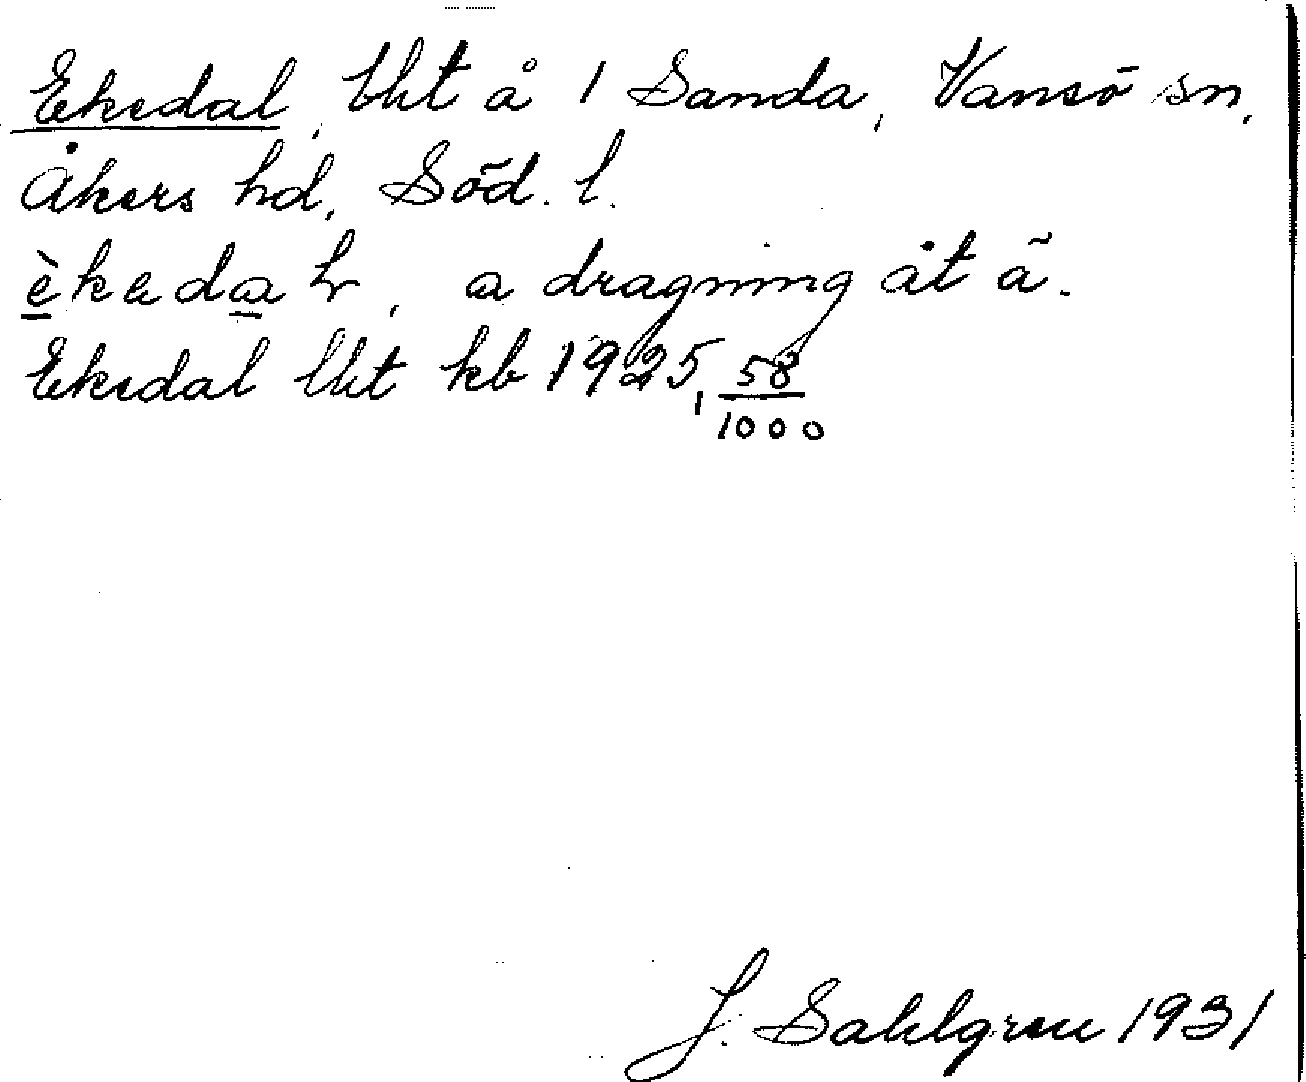 Ekedal, lht å 1 Sanda, Vansö sn,
Åkers hd, Söd. l.
èkedaɫ, a dragning åt ä.
Ekedal lht kb 1925, 58/1000
J. Sahlgren 1931